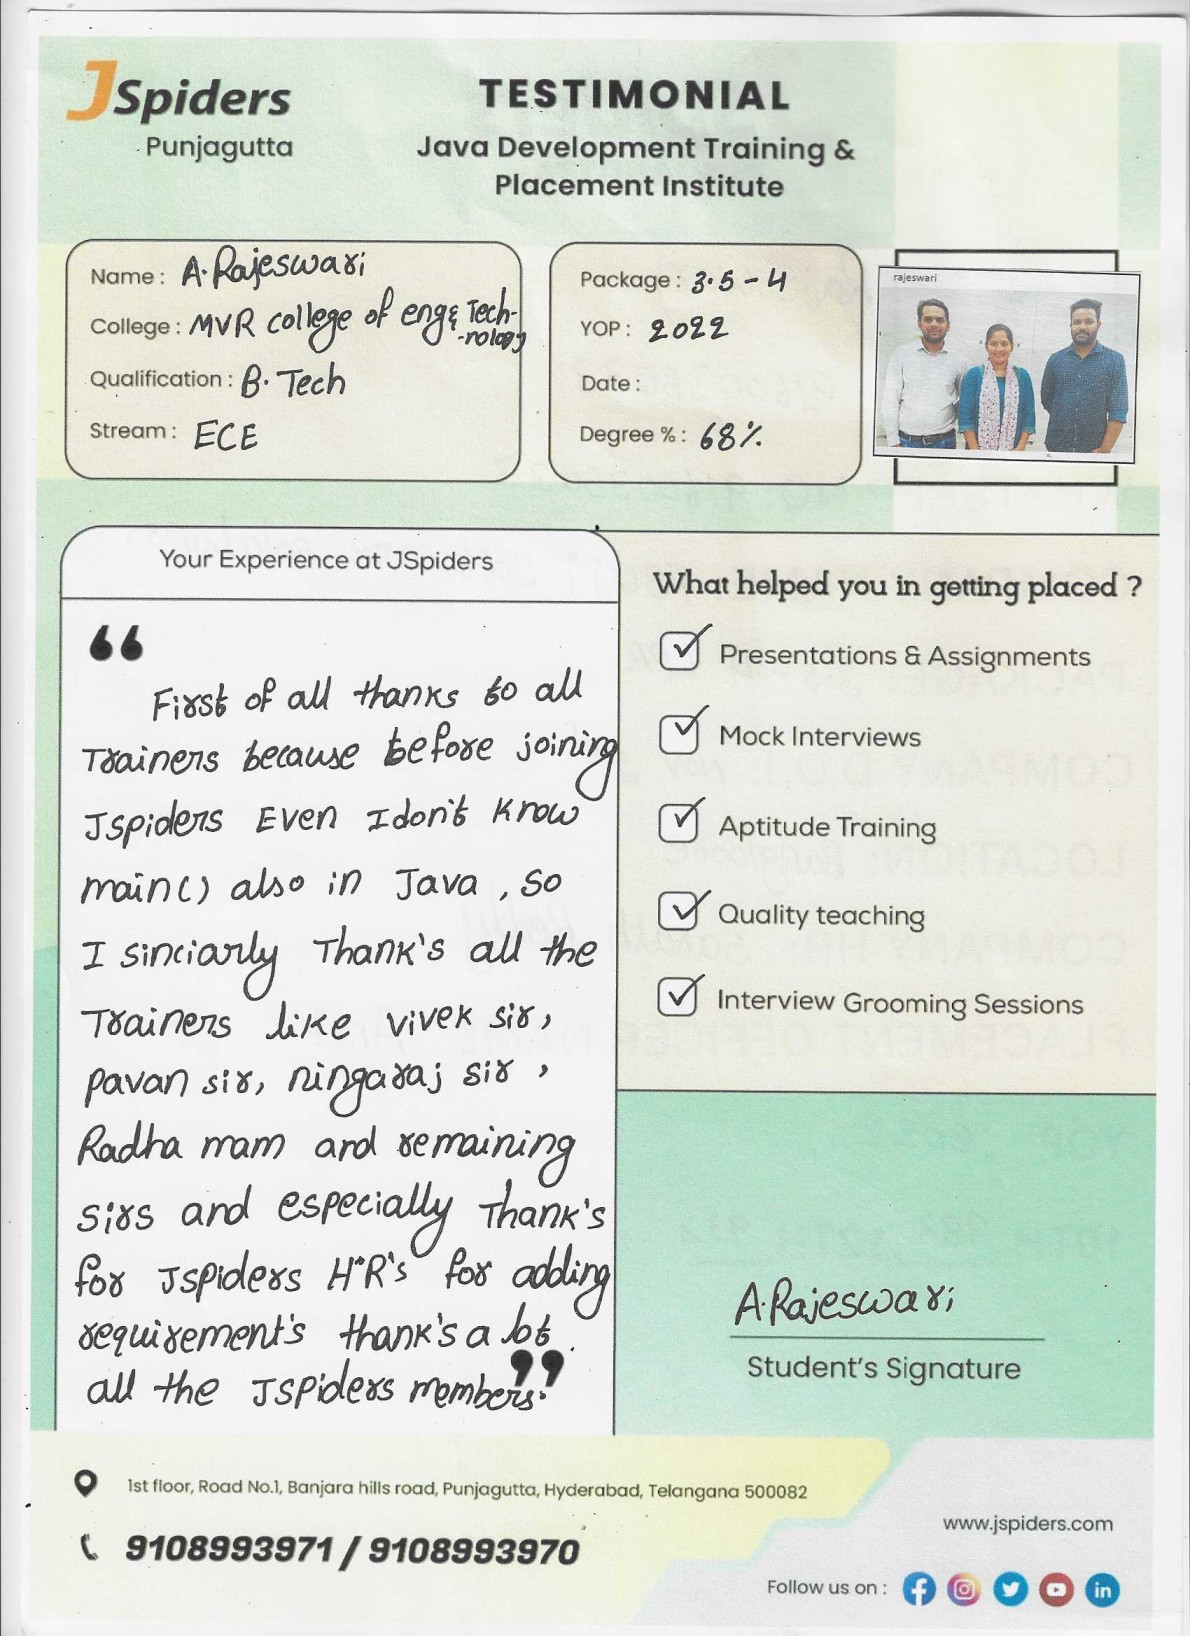 JSpiders
Punjagutta
TESTIMONIAL
Java Development Training &
Placement Institute
Name : A. Rajeswari
College : MVR college of eng & Tech-
-nology
Qualification : B. Tech
Stream : ECE
Package : 3.5 - 4
YOP : 2022
Date :
Degree % : 68%
rajeswari
Your Experience at JSpiders
“
First of all thanks to all
Trainers because before joining
Jspiders Even I don't know
main() also in Java , so
I sinciarly Thank's all the
Trainers like vivek sir,
pavan sir, ningaraj sir ,
Radha mam and remaining
sirs and especially Thank's
for Jspiders H.R's for adding
requirement's thank's a lot
all the Jspiders members.
”
What helped you in getting placed ?
Presentations & Assignments
Mock Interviews
Aptitude Training
Quality teaching
Interview Grooming Sessions
A.Rajeswari
Student's Signature
1st floor, Road No.1, Banjara hills road, Punjagutta, Hyderabad, Telangana 500082
9108993971 / 9108993970
www.jspiders.com
Follow us on :